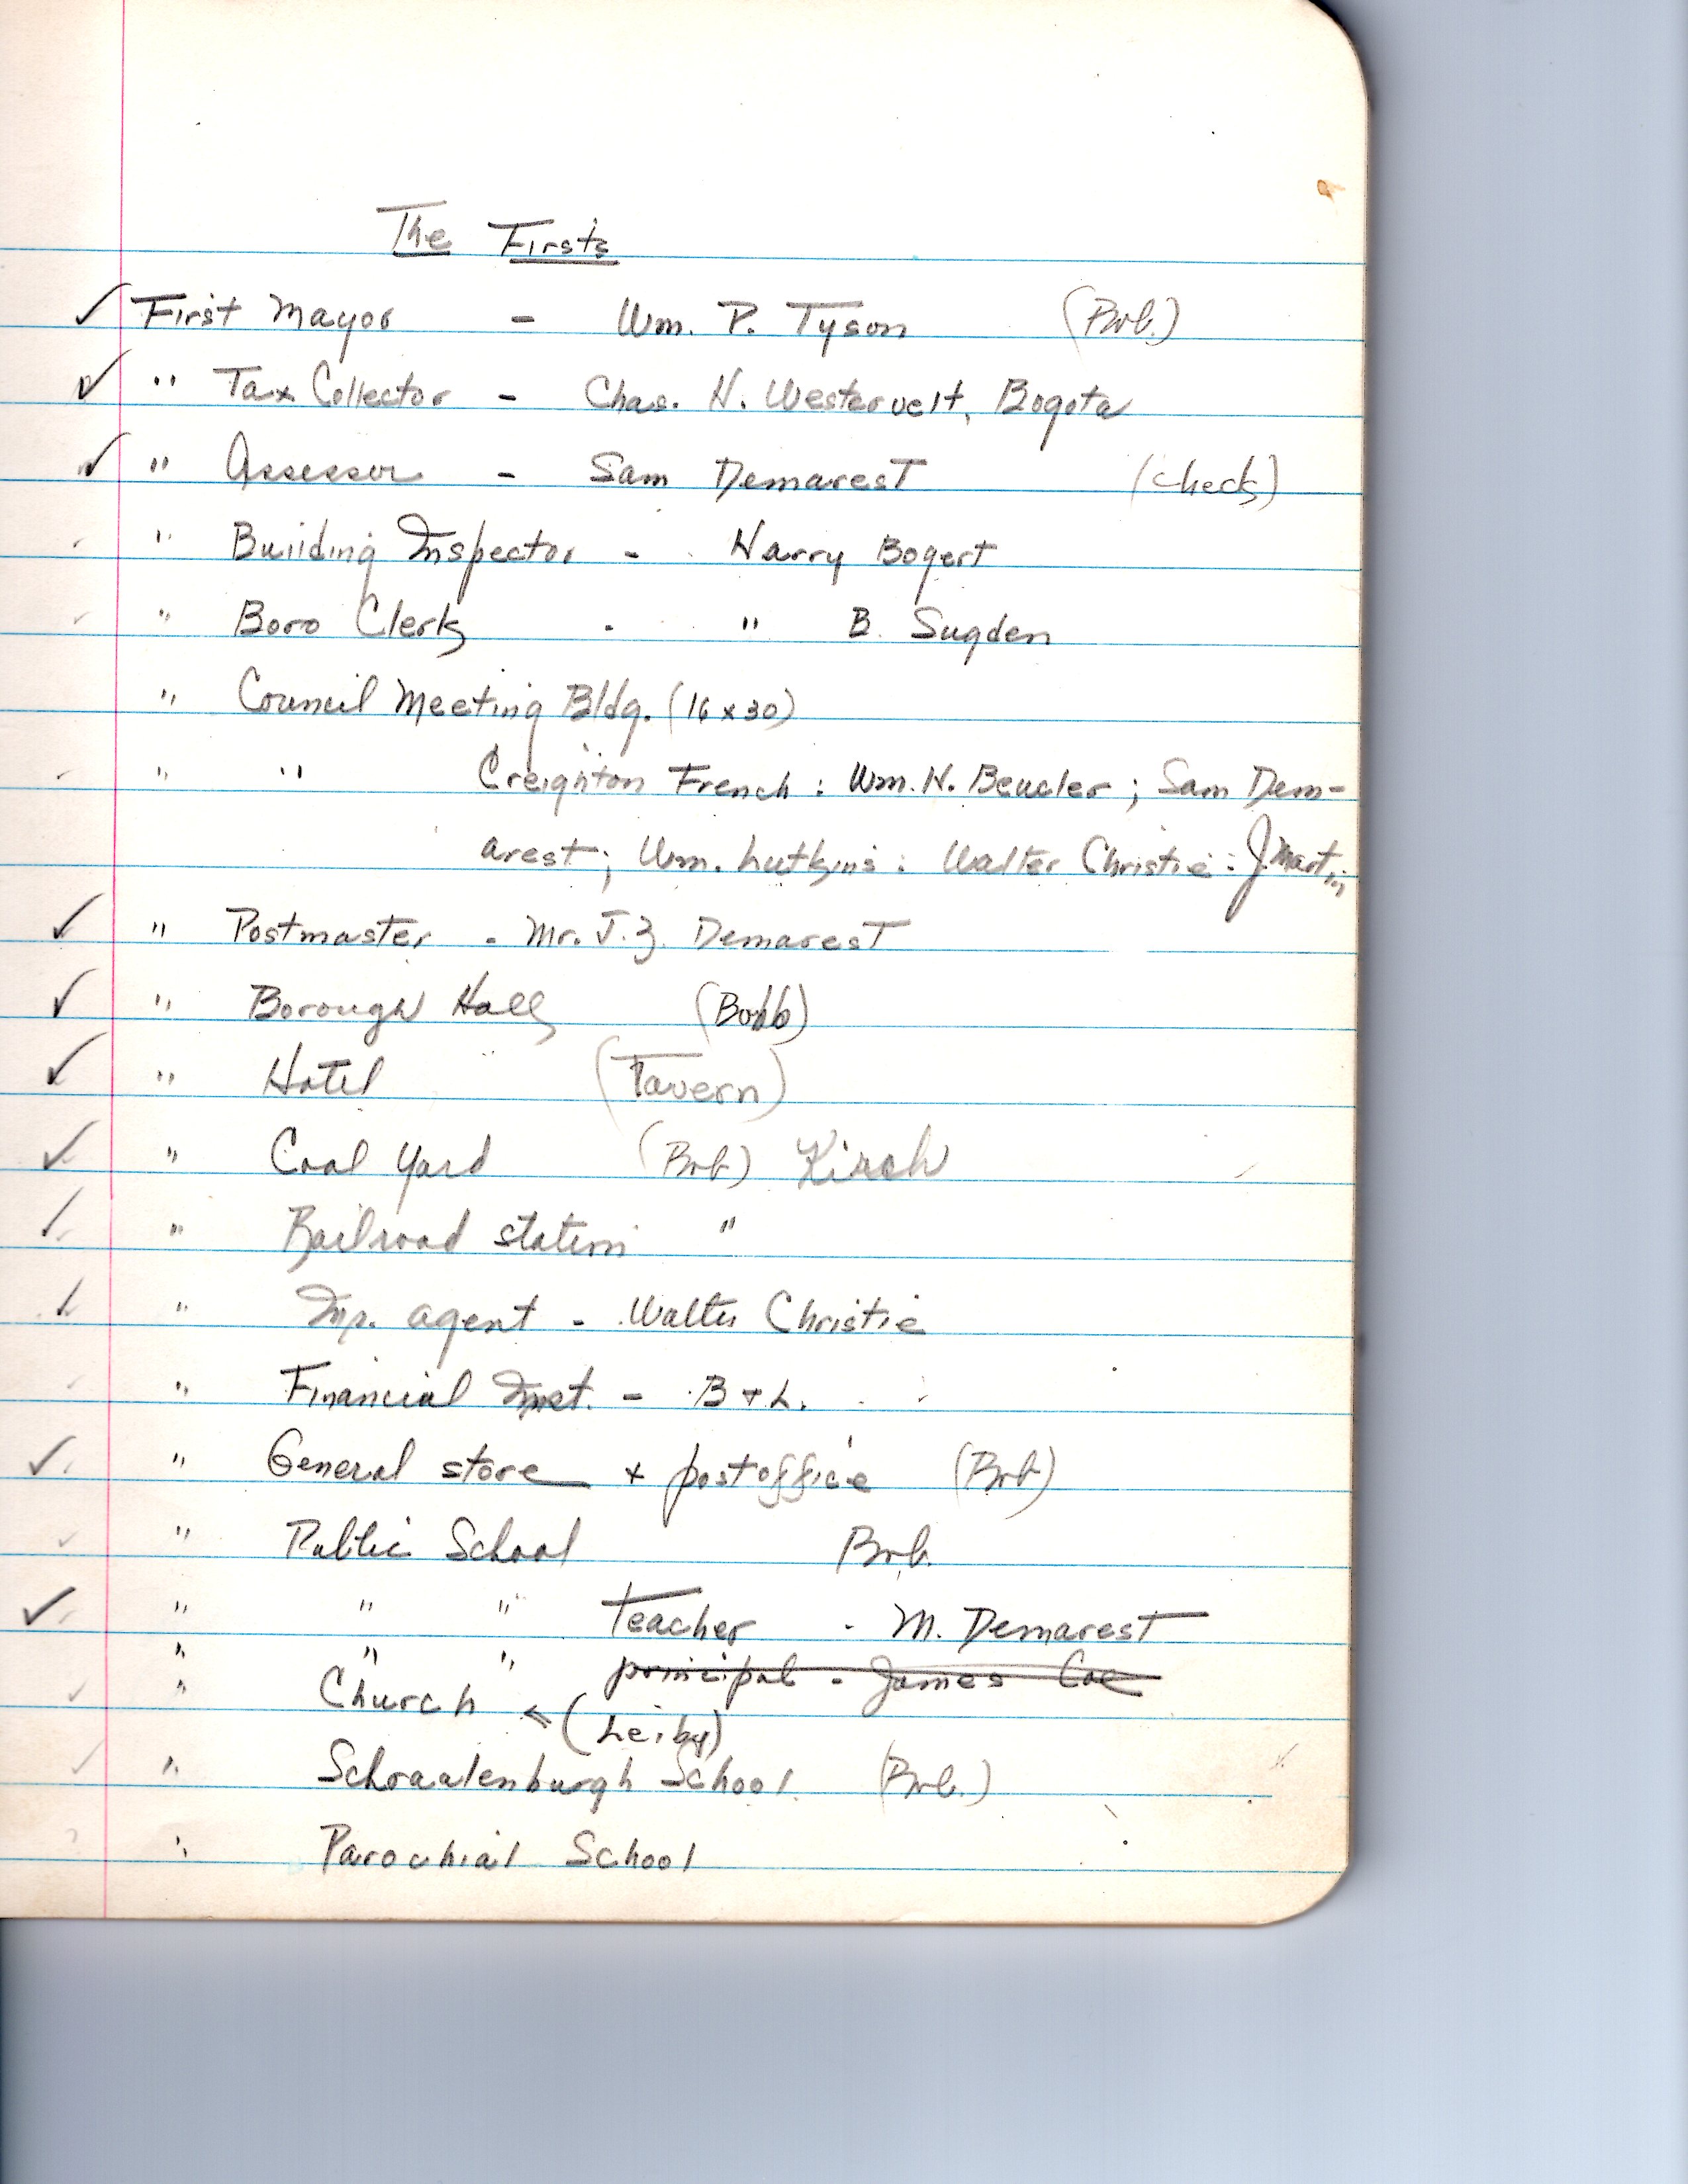 The Firsts
✓ First Mayor - Wm. P. Tyson (Bob.)
✓ " Tax Collector - Chas. H. Westervelt, Bogota
✓ " Assessor - Sam Demarest (check)
" Building Inspector - Harry Bogert
" Boro Clerk - " B. Sugden
" Council Meeting Bldg. (16 x 30)
" " Creighton French : Wm. H. Beucler ; Sam Dem-
arest ; Wm. Lutkins : Walter Christie : J. Martin
✓ " Postmaster - Mr. J. Z. Demarest
✓ " Borough Hall (Bobb)
✓ " Hotel (Tavern)
✓ " Coal Yard (Bob)
✓ " Railroad station "
✓ " Ins. agent - Walter Christie
" Financial Inst. - B + L.
✓ " General store + postoffice (Bob)
" Public School Bob.
✓ " " " teacher - M. Demarest
" " " principal - James Coe
" Church ← (Leiby)
" Schraalenburgh School (Bob.)
" Parochial School